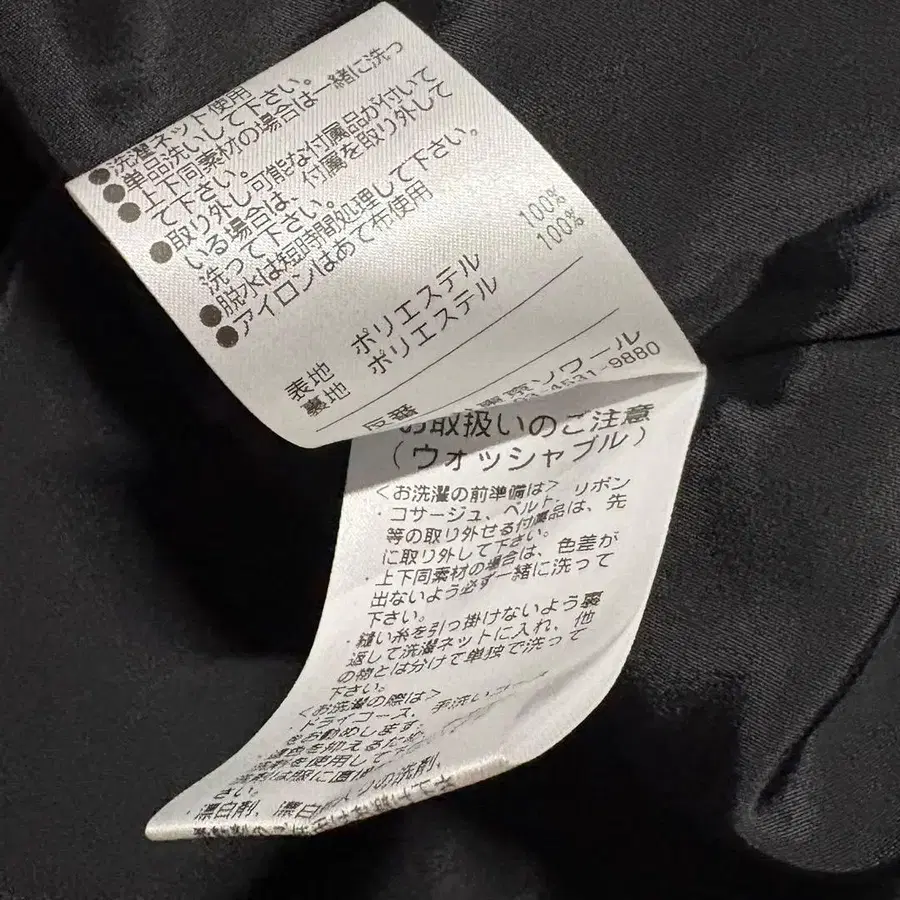 ●洗濯ネット使用
●単品洗いして下さい。
●上下同素材の場合は一緒に洗っ
て下さい。
●取り外し可能な付属品が付いて
いる場合は、付属を取り外して
洗って下さい。
●脱水は短時間処理して下さい。
●アイロンはあて布使用
表地 ポリエステル 100%
裏地 ポリエステル 100%
反番 東京ソワール
03-4531-9880
お取扱いのご注意
(ウォッシャブル)
<お洗濯の前準備は>
・コサージュ、ベルト、リボン
等の取り外せる付属品は、先
に取り外して下さい。
・上下同素材の場合は、色差が
出ないよう必ず一緒に洗って
下さい。
・縫い糸を引っ掛けないよう裏
返して洗濯ネットに入れ、他
の物とは分けて単独で洗って
下さい。
<お洗濯の際は>
・ドライコース、手洗いコース
をお勧めします。
を抑えるため
を使用して下
は服に直接
さい。
・漂白剤、漂白 の洗剤、